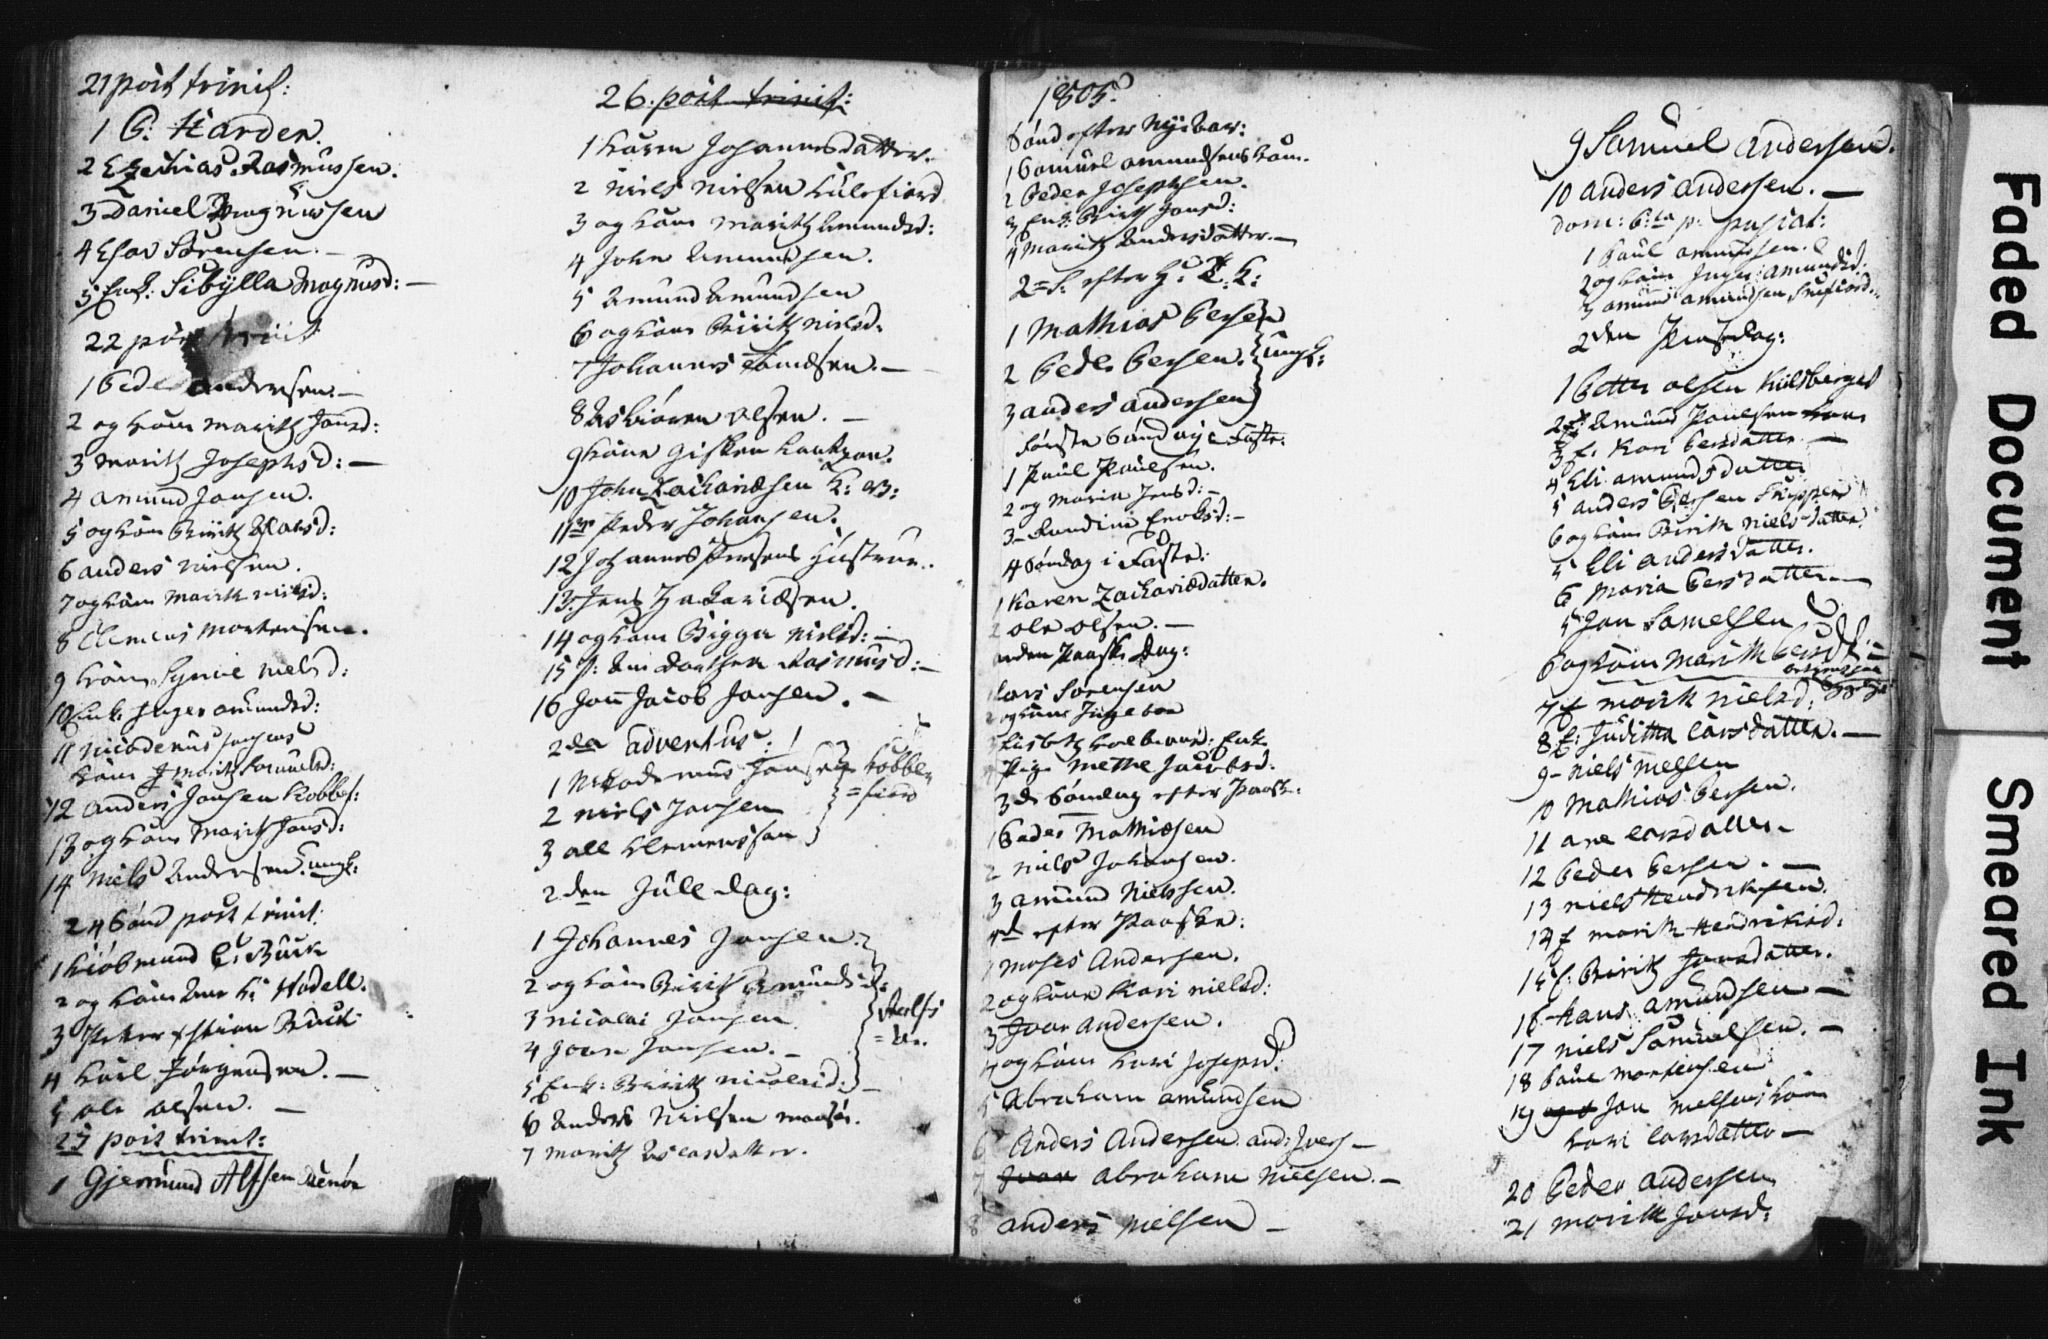 21 post trinit:
1 C: Harder.
2 Ezechias Rasmussen.
3 Daniel Magnussen
4 Esas Sørensen. —
5 Enk: Sibÿlla Magnusd: —
22 post trinit
1 Peder andersen. —
2 og kone Marith Jonsd:
3 Marith Josephsd: —
4 amund Jonsen.
5 og kone Birith
6 anders nielsen.
7 og kone Marith nielsd:
8 Clemens Mortensen.
9 kone Synne nielsd:
10 Enk: Inger amundsd:
11 Nicodemus Jonsens
kone Marith Samuelsd:
12 anders Jonsen Kobbef:
13 og kone Marith Jonsd:
14 Niels Andersen. ungk:
24 Sönd post trinit:
1 Kiöbmand C: Buck
2 og kone H: Hodell.
3 Peter Buck
4 Karl Jørgensen. —
5 ole olsen. —
25 post trinit:
1 Gjermund Alfsen
26. post trinit:
1 Karen Johannesdatter.
2 Niels Nielsen
3 og kone Marith Amundsd:
4 John Amundsen.
5 Amund Amundsen
6 og kone Birith Nielsd:
7 Johannes —
8 Asbiören olsen. —
9 kone Gisken
10 John Zachariæsen
11 Peder Johansen.
12 Johannes Hustrue.
13 Jens Zakariæsen.
14 og kone Bigga Nielsd: —
15 P: Ane Dorthea Rasmusd: —
16 Jon Jacob Jonsen. —
2den adventus: 1
1 Nicodemus Jonsen Kobbe
= fiord
2 Niels Jonsen
3 ole Klemenssen
2den Jüledag:
1 Johannes Jonsen.
2 og kone Birith Amundsd:
3 Nicolai Jonsen
4 Jonn Jonsen. —
5 Enk: Birith Nicolaid: —
6 Anders Nielsen
7 Marith
1805.
Sönd efter Nyeaar:
1 Samuel amundsens kone.
2 Peder Josephsen.
3 Enk: Birith Jonsd:
4 Marith Andersdatter. —
2= S: efter H: 3 K:
1 Mathias Persen
2 Peder Persen. ungk:
3 anders andersen
første Sönd i Faste:
1 Paul Paulsen.
2 og Maria Jensd: —
3 Randine Enoksd: —
4 Söndag i Faste:
1 Karen Zachariædatter.
2 ole olsen. —
anden Paaske Dag:
Lars Sørensen
2 og kone Ingebor
Lisbeth Enk.
Pige Methe Jacobsd:
3de Söndag efter Paask:
1 Peder Mathiesen
2 Niels Johansen.
3 amund Nielssen.
4de efter Paaske:
1 Moses Andersen.
2 og kone Kari nielsd:
3 Ivar Andersen.
4 og kone Kari Josepsd:
5 Abraham amundsen
6 Anders Andersen and: Ivers —
7 Ivar abraham Nielsen. —
8 anders Nielsen —
9 Samuel Andersen.
10 anders andersen. —
dom: 6:ta p: pascat:
1 Paul amundsen.
2 og kone Inger: amundsd.
3 amund amundsen
2den Pinsedag:
1 Petter olsen
2 Amund Paulsen
3 f. Kari Persdatter —
4 Eli amundsdatter
5 anders Persen
6 og kone Birith Nielsdatter
5 Eli andersdatter.
6 Maria Persdatter —
5 Jon Samelsen
6 og kone Marith Persd: —
7 f Marith Nielsd:
8 f: Juditha Larsdatter. —
9 — Niels Nielsen
10 Mathias Persen.
11 ane Larsdatter —
12 Peder Persen. —
13 Niels Hendriksen.
14 f Marith Hendriksd:
15 f: Birith Jonsdatter.
16 Hans amundsen —
17 Niels Samuelsen. —
18 Paul Mortensen
19 og Jon Nielsens kone
Kari Larsdatter —
20 Peder andersen
21 Marith Jonsd:
Faded Document
Smeared Ink